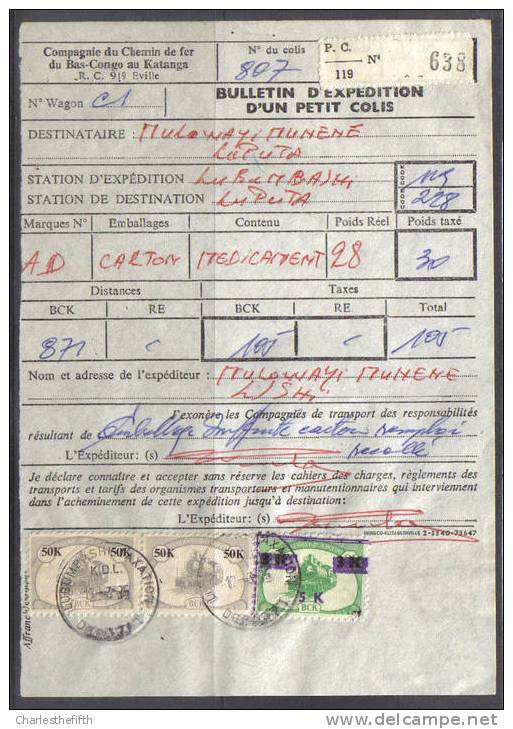 Compagnie du Chemin de fer
du Bas-Congo au Katanga
R. C. 919 Eville
N° du colis
807
P. C. N°
119
638
N° Wagon C1
BULLETIN D'EXPEDITION
D'UN PETIT COLIS
DESTINATAIRE : MULOWAYI MUNENE
LUPUTA
STATION D'EXPÉDITION LUBUMBASHI CODE 119
STATION DE DESTINATION LUPUTA CODE 228
Marques N° Emballages Contenu Poids Réel Poids taxé
AD CARTON MEDICAMENT 28 30
Distances Taxes
BCK RE BCK RE Total
871 105 105
Nom et adresse de l'expéditeur : MULOWAYI MUNENE
L/SHI
J'exonère les Compagnies de transport des responsabilités
résultant de Emballage carton
L'Expéditeur: (s)
Je déclare connaître et accepter sans réserve les cahiers des charges, règlements des
transports et tarifs des organismes transporteurs et manutentionnaires qui interviennent
dans l'acheminement de cette expédition jusqu'à destination:
L'Expéditeur: (s)
50K 50K 50K 50K 3 K
5 K
BCK BCK BCK
LUBUMBASHI TAXATION
K.D.L.
Affranchissement
Charlesthefifth
delcampe.net